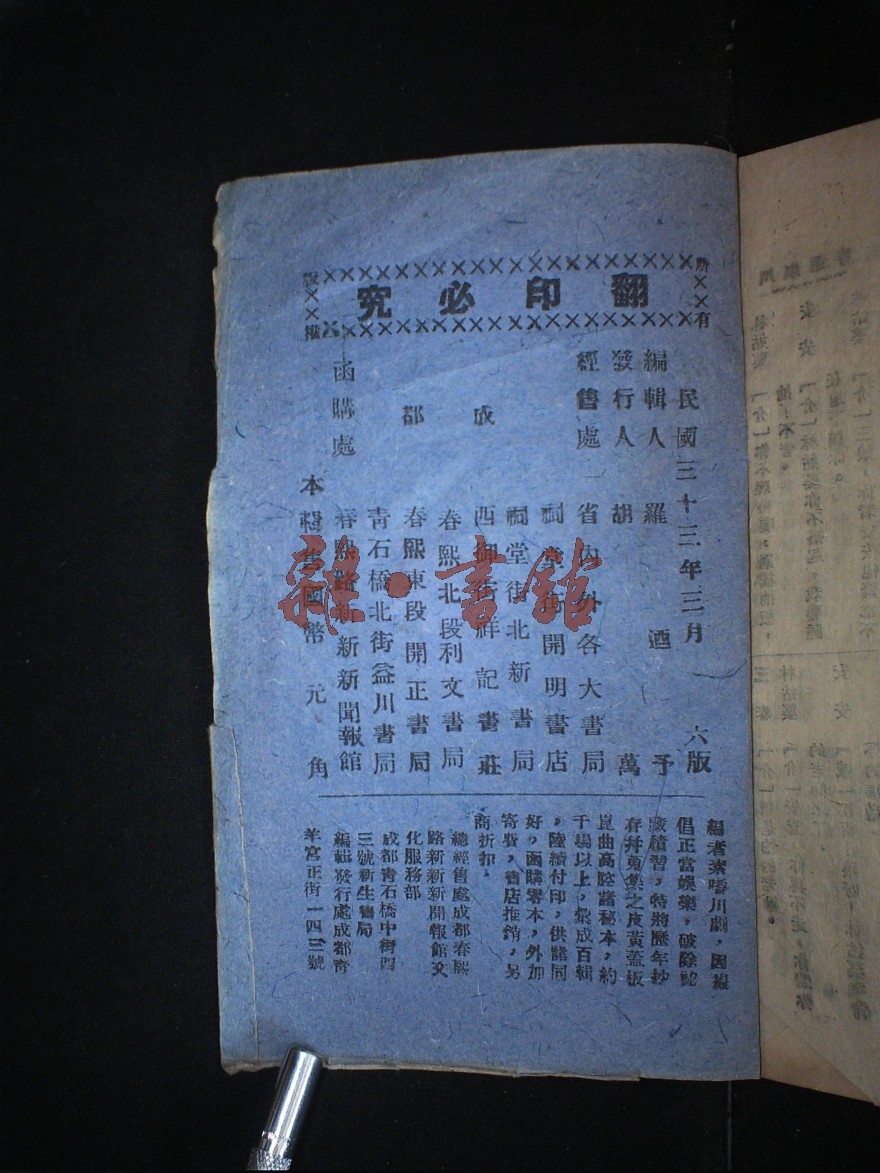 所有
版權
翻印必究
民國三十三年三月 六版
編輯人 羅 適 予
發行人 胡 萬
經售處 省內外各大書局
祠堂街開明書店
祠堂街北新書局
成 西御街祥記書莊
春熙北段利文書局
都 春熙東段開正書局
青石橋北街益川書局
函購處 春熙路新新新聞報館
本輯售國幣 元 角
編者素嗜川劇,因編
倡正當娛樂,破除
積習,特將歷年鈔
存幷蒐集之皮黃蓋板
崑曲高腔諸秘本,約
千場以上,集成百輯
,陸續付印,供諸同
好,函購零本,外加
寄費,書店推銷,另
商折扣。
總經售處成都春熙
路新新新聞報館文
化服務部
成都青石橋中街四
三號新生書局
編輯發行處成都青
羊宮正街一四三號
雜·書館